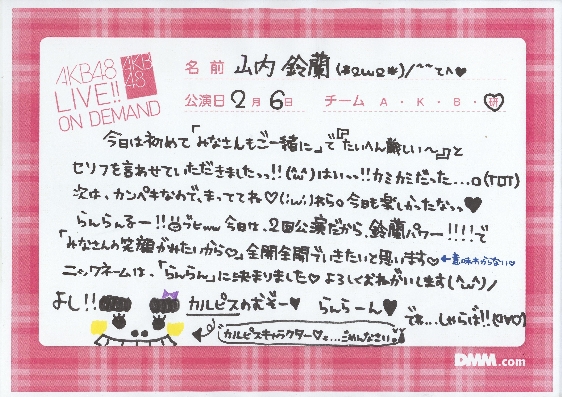 AKB48
LIVE!!
ON DEMAND
AKB
48
名前 山内 鈴蘭
公演日 2月6日 チーム A・K・B・研
今日は初めて「みなさんもご一緒に」で『たいへん厳しい〜』と
セリフを言わせていただきましたっっ!!(^ω^)はいっっ!!カミカミだった…。o(TДT)
次は、カンペキなので、まっててね♡(;ω;)れら。今日も楽しかったなっっ♥
らんらんるー!!ブヒww今日は、2回公演だから、鈴蘭パワー!!!!で
「みなさんの笑顔がみたいから♡」全開全開でいきたいと思います♡ ←意味わからない♡
ニックネームは、「らんらん」に決まりました♡ よろしくおねがいします(^ω^)ノ
よし!! カルピスのむぞー♥ らんらーん♥ でわ…しゃらば!!(o∀o)
カルピスキャラクター♡x…ごめんなさい
DMM.com